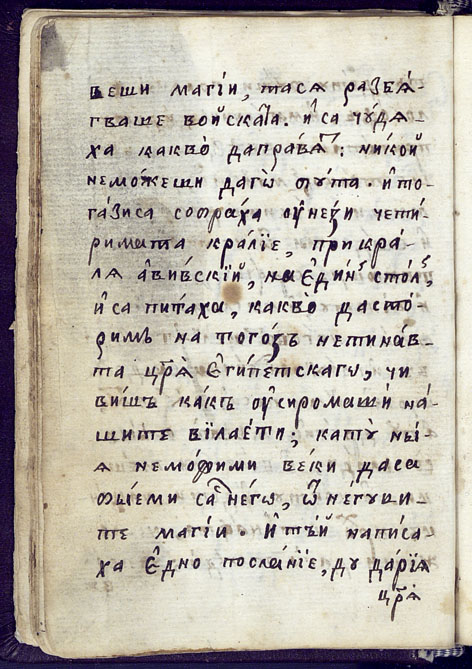 вещи магїи, тася разбѧ-
гваше войската. и҆ са чѹдѧ-
ха какво̀ даправѧт: никой
неможеши даго̀ ѻута. и҆то-
газиса собраха ѹ҆ нези чети-
римата кралїе, при кра-
лѧ а҆вивскїй, на є҆дин столъ,
и҆са питаха, какво̀ дасто-
римъ на тогозъ нетинав-
та цр҃ѧ є҆гїпетскагѡ, чи
вишъ какъ ѹ҆сиромаши на-
шите вїлаети; кату ны-
ѧ неможими веки даса
бїеми са него, ѿ негуви-
те магїи. и҆ тїй написа-
ха є҆дно посланїе, ду дарїѧ
цр҃ѧ